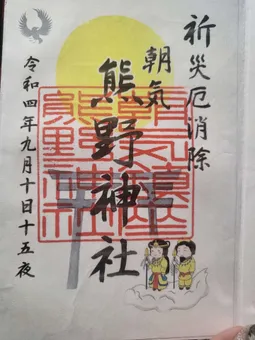 祈災厄消除
朝氣
熊野神社
令和四年九月十日十五夜